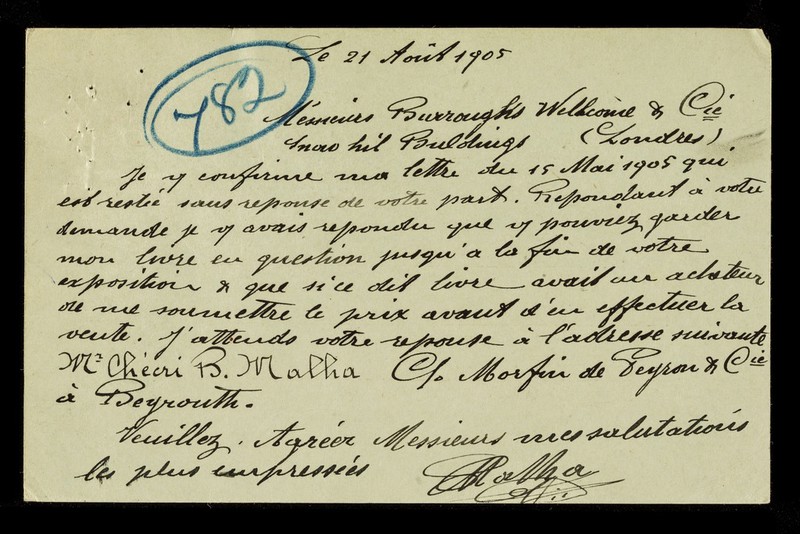 Le 21 Août 1905
782
Messieurs Burroughs Wellcome & Cie
Snow hil Buldings (Londres)
Je v confirme ma lettre du 15 Mai 1905 qui
est restié sans reponse de votre part. Repondant à votre
demande je v avais repondu que v pouviez garder
mon livre en question jusqu'a la fin de votre
exposition & que si ce dit livre avait un acheteur
de me soumettre le prix avant d'en effectuer la
vente. J'attends votre reponse à l'adresse suivante
Mr Chécri B. Malha C/o Morfin de Peyron & Cie
à Beyrouth.
Veuillez. Agréer Messieurs mes salutations
les plus empressées Malha